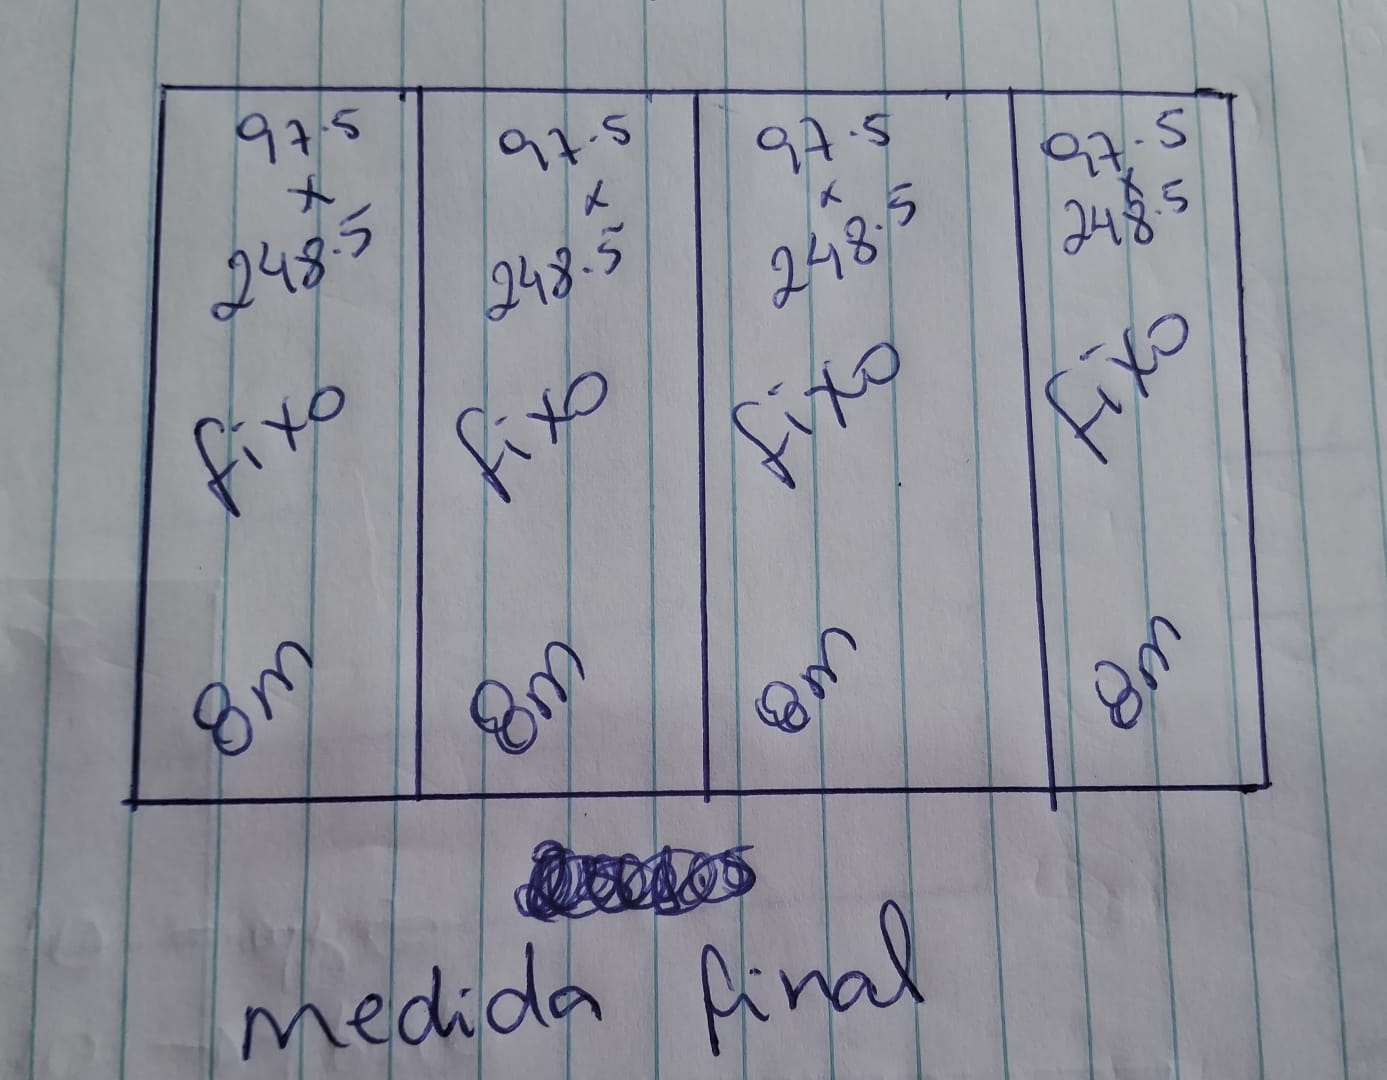 97.5
x
248.5
fixo
8m
97.5
x
248.5
fixo
8m
97.5
x
248.5
fixo
8m
97.5
x
248.5
fixo
8m
medida final